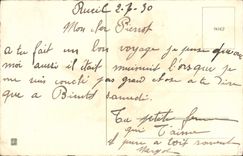 Rueil 2-7-30
Mon cher Pierrot
a tu fait un bon voyage je pense que oui
moi aussi il était minuit lorsque je
me suis couché pas grand chose a te dire
que a Bientôt samedi.
Ta ptite femme
qui t'aime
et pense a toi souvent